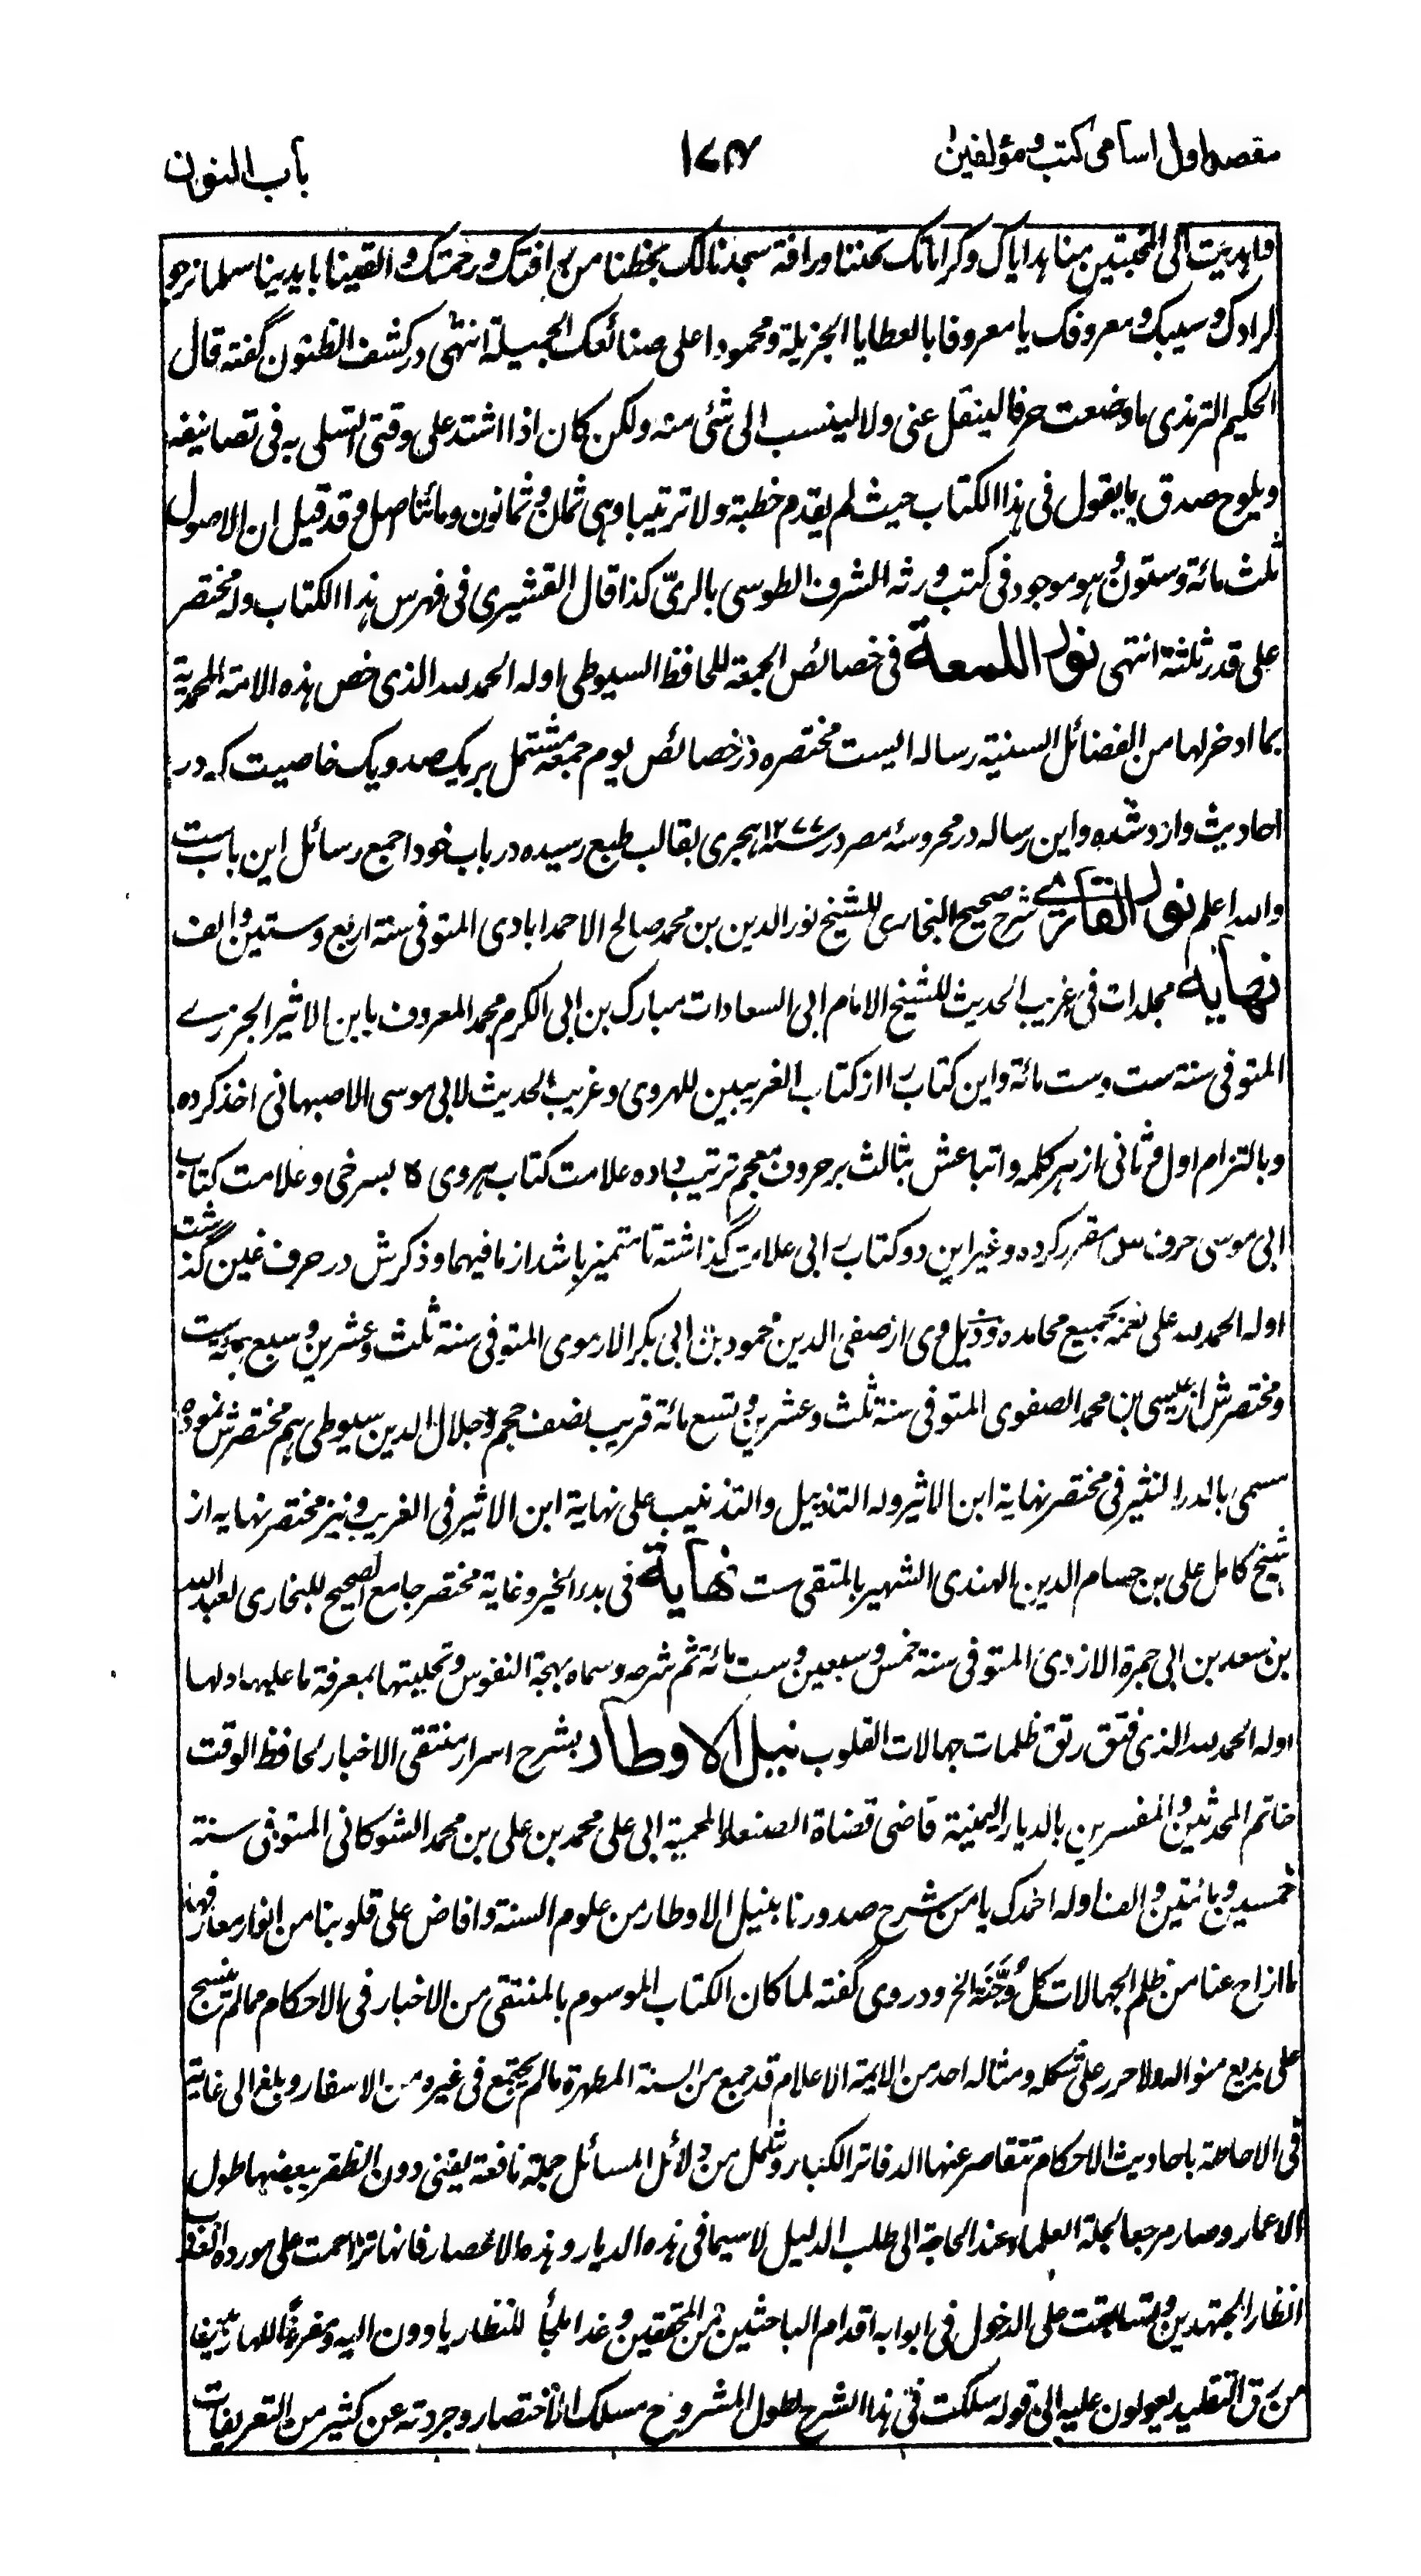 مقصد اول اسامی کتب و مؤلفین
۱۷۴
باب النون
الی المخبتین منا هدایاک وکراماتک تحننا ورافة سجدنا لک بخطنا من رافتک ورحمتک والقینا بایدینا سلما نرجو
لرادک وسیبک ومعروفک یا معروفا بالعطایا الجزیلة ومحمودا علی صنائعک الجمیلة انتهی در کشف الظنون گفته قال
الحکیم الترمذی ما وضعت حرفا لینقل عنی ولا لینسب الی شئ منه ولکن کان اذا اشتد علی وقتی اتسلی به فی تصانیفه
ویلوح صدق ما یقول فی هذا الکتاب حیث لم یقدم خطبة ولا ترتیبا وهی ثمان وثمانون ومائتا اصل وقد قیل ان الاصول
ثلث مائة وستون وهو موجود فی کتب ورثه المشرف الطوسی بالری کذا قال القشیری فی فهرس هذا الکتاب وله مختصر
علی قدر ثلثه انتهی نور اللمعة فی خصائص الجمعة للحافظ السیوطی اوله الحمد لله الذی خص هذه الامة المحمدیة
بما ادخر لها من الفضائل السنیة رساله ایست مختصره در خصائص یوم جمعه مشتمل بر یک صد و یک خاصیت که در
احادیث وارد شده و این رساله در محروسۀ مصر در سنه ۱۲۷۷ هجری بقالب طبع رسیده در باب خود اجمع رسائل این باب ست
والله اعلم نور القاری شرح صحیح البخاری للشیخ نور الدین بن محمد صالح الاحمدابادی المتوفی سنة اربع وستین والف
نهایه مجلدات فی غریب الحدیث للشیخ الامام ابی السعادات مبارک بن ابی الکرم محمد المعروف بابن الاثیر الجزرے
المتوفی سنة ست وست مائة و این کتاب را از کتاب الغریبین للهروی وغریب الحدیث لابی موسی الاصبهانی اخذ کرده
و بالتزام اول و ثانی از هر کلمه و اتباعش بثالث بر حروف معجم ترتیب داده علامت کتاب هروی ه بسرخی و علامت کتاب
ابی موسی حرف س مقرر کرده و غیر این دو کتاب را بی علامت گذاشته تا متمیز باشد از ما فیهما و ذکرش در حرف غین گذشت
اوله الحمد لله علی نعمه بجمیع محامده و ذیل وی از صفی الدین محمود بن ابی بکر الارموی المتوفی سنة ثلث وعشرین وسبع مائة ست
و مختصرش از عیسی بن محمد الصفوی المتوفی سنة ثلث وعشرین وتسع مائة قریب نصف حجم و جلال الدین سیوطی هم مختصرش نموده
مسمی بالدر النثیر فی مختصر نهایة ابن الاثیر وله التذییل والتذنیب علی نهایة ابن الاثیر فی الغریب و نیز مختصر نهایه از
شیخ کامل علی بن حسام الدین الهندی الشهیر بالمتقی ست نهایة فی بدء الخیر وغایة مختصر جامع الصحیح للبخاری لعبد الله
بن سعد بن ابی جمرة الازدی المتوفی سنة خمس وسبعین وست مائة ثم شرحه وسماه بهجة النفوس وتحلیتها بمعرفة ما علیها ولها
اوله الحمد لله الذی فتق رتق ظلمات جهالات القلوب نیل الاوطار بشرح اسرار منتقی الاخبار لحافظ الوقت
خاتم المحدثین والمفسرین بالدیار الیمنیة قاضی قضاة الصنعاء المحمیة ابی علی محمد بن علی بن محمد الشوکانی المتوفی سنة
خمسین ومائتین والف اوله احمدک یا من شرح صدورنا بنیل الاوطار من علوم السنة وافاض علی قلوبنا من انوار معارفها
ما ازاح عنا من ظلم الجهالات کل دجنة الخ و در وی گفته لما کان الکتاب الموسوم بالمنتقی من الاخبار فی الاحکام مما لم ینسج
علی بدیع منواله ولا حرر علی شکله ومثاله احد من الایمة الاعلام قد جمع من السنة المطهرة ما لم یجتمع فی غیره من الاسفار وبلغ الی غایة
فی الاحاطة باحادیث الاحکام تتقاصر عنها الدفاتر الکبار وشمل من دلائل المسائل جملة نافعة یفنی دون الظفر ببعضها طول
الاعمار وصار مرجعا لجلة العلماء عند الحاجة الی طلب الدلیل لا سیما فی هذه الدیار وهذه الاعصار فانها تزاحمت علی مورده العذب
انظار المجتهدین وتسابقت علی الدخول فی ابوابه اقدام الباحثین من المحققین وغدا ملجأ للنظار یاوون الیه ومفزعا للهاربین
من رق التقلید یعولون علیه الی قوله سلکت فی هذا الشرح لطول المشروح مسلک الاختصار وجردته عن کثیر من التعریفات